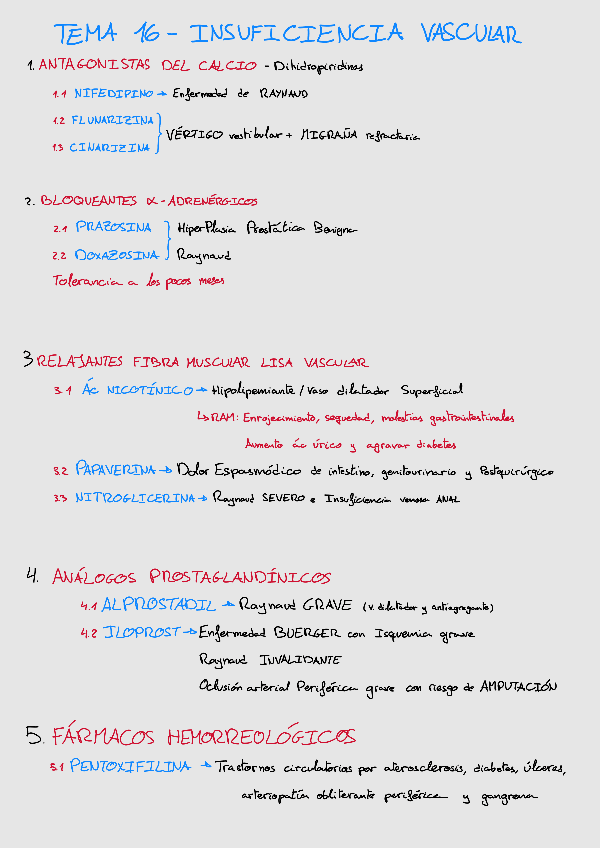 TEMA 16 - INSUFICIENCIA VASCULAR
1. ANTAGONISTAS DEL CALCIO - Dihidropiridinas
1.1 NIFEDIPINO → Enfermedad de RAYNAUD
1.2 FLUNARIZINA
1.3 CINARIZINA
VÉRTIGO vestibular + MIGRAÑA refractaria
2. BLOQUEANTES α-ADRENÉRGICOS
2.1 PRAZOSINA HiperPlasia Prostática Benigna
2.2 DOXAZOSINA Raynaud
Tolerancia a los pocos meses
3 RELAJANTES FIBRA MUSCULAR LISA VASCULAR
3.1 ÁC NICOTÍNICO → Hipolipemiante / Vaso dilatador Superficial
↳ RAM: Enrojecimiento, sequedad, molestias gastrointestinales
Aumento ác úrico y agravar diabetes
3.2 PAPAVERINA → Dolor Espasmódico de intestino, genitourinario y Postquirúrgico
3.3 NITROGLICERINA → Raynaud SEVERO e Insuficiencia venosa ANAL
4. ANÁLOGOS PROSTAGLANDÍNICOS
4.1 ALPROSTADIL → Raynaud GRAVE (v. dilatador y antiagregante)
4.2 ILOPROST → Enfermedad BUERGER con Isquemia grave
Raynaud INVALIDANTE
Oclusión arterial Periférica grave con riesgo de AMPUTACIÓN
5. FÁRMACOS HEMORREOLÓGICOS
5.1 PENTOXIFILINA → Trastornos circulatorios por aterosclerosis, diabetes, úlceras,
arteriopatía obliterante periférica y gangrena